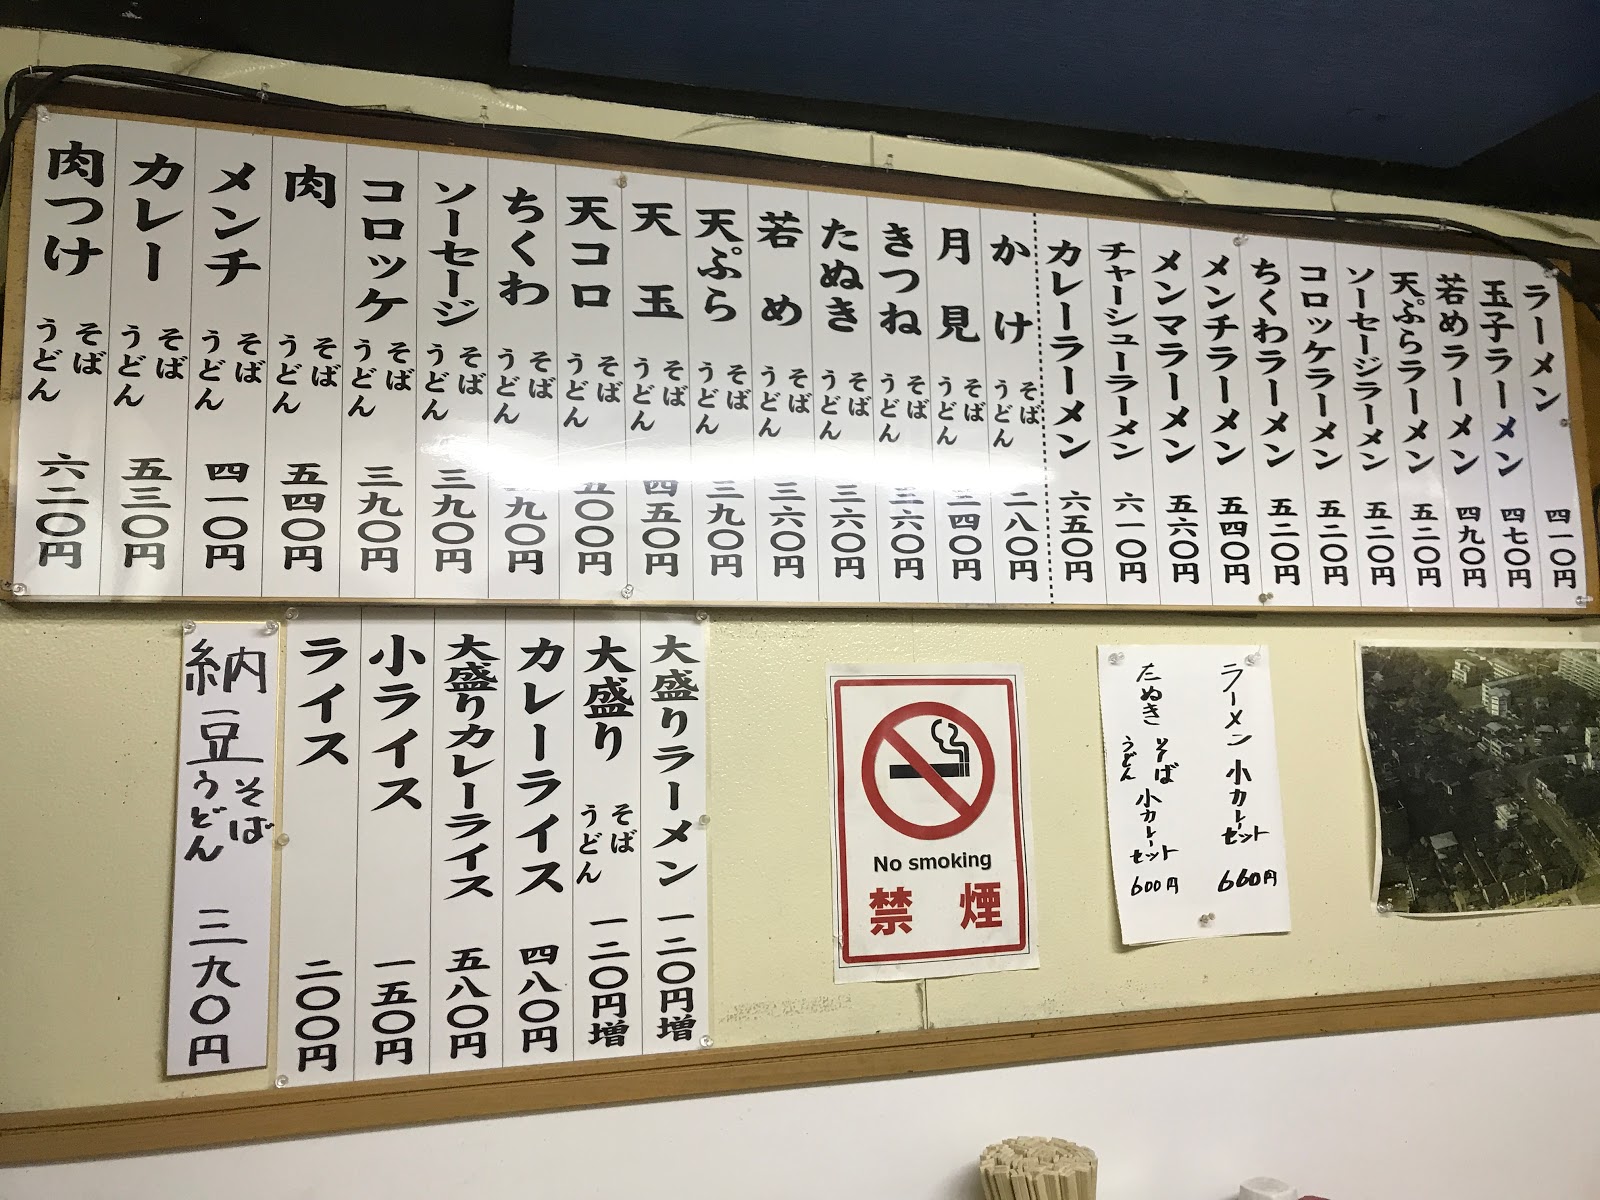 ラーメン 四一〇円
玉子ラーメン 四七〇円
若めラーメン 四九〇円
天ぷらラーメン 五二〇円
ソーセージラーメン 五二〇円
コロッケラーメン 五二〇円
ちくわラーメン 五二〇円
メンチラーメン 五四〇円
メンマラーメン 五六〇円
チャーシューラーメン 六一〇円
カレーラーメン 六五〇円
かけ そば うどん 二八〇円
月見 そば うどん 三四〇円
きつね そば うどん 三六〇円
たぬき そば うどん 三六〇円
若め そば うどん 三六〇円
天ぷら そば うどん 三九〇円
天玉 そば うどん 四五〇円
天コロ そば うどん 五〇〇円
ちくわ そば うどん 三九〇円
ソーセージ そば うどん 三九〇円
コロッケ そば うどん 三九〇円
肉 そば うどん 五四〇円
メンチ そば うどん 四一〇円
カレー そば うどん 五三〇円
肉つけ そば うどん 六二〇円
大盛りラーメン 一二〇円増
大盛り そば うどん 一二〇円増
カレーライス 四八〇円
大盛りカレーライス 五八〇円
小ライス 一五〇円
ライス 二〇〇円
納豆 そば うどん 三九〇円
No smoking
禁煙
ラーメン 小カレーセット 660円
たぬき そば うどん 小カレーセット 600円